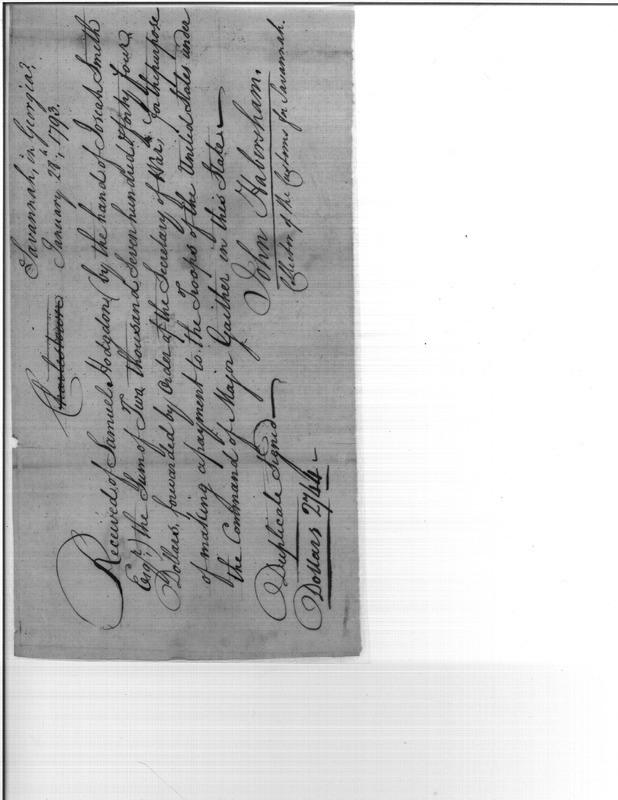 Savannah, in Georgia?
Charlestown January 28th, 1793.
Received, of Samuel Hodgdon, (by the hand of Josiah Smith
Esqr.) the Sum of Two thousand Seven hundred & forty four
Dollars, forwarded by Order of the Secretary of War, for the purpose
of making a payment to the Troops of the United States under
the Command of Major Gaither in this State.
John Habersham.
Collector of the Customs for Savannah.
Duplicate Signed
Dollars 2744